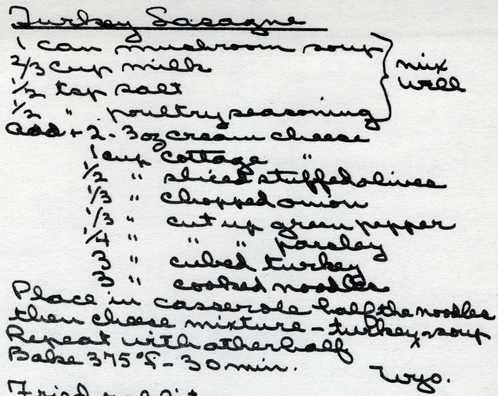 Turkey Lasagne
1 can mushroom soup
2/3 cup milk
1/2 tsp salt
1/2 " poultry seasoning
mix
well
Add + 2 - 3 oz cream cheese
1 cup cottage "
1/2 " sliced stuffed olives
1/3 " chopped onion
1/3 " cut up green pepper
1/4 " " " parsley
3 " cubed turkey
3 " cooked noodles
Place in casserole half the noodles
then cheese mixture - turkey, soup
Repeat with other half
Bake 375°F - 30 min.
Wyo.